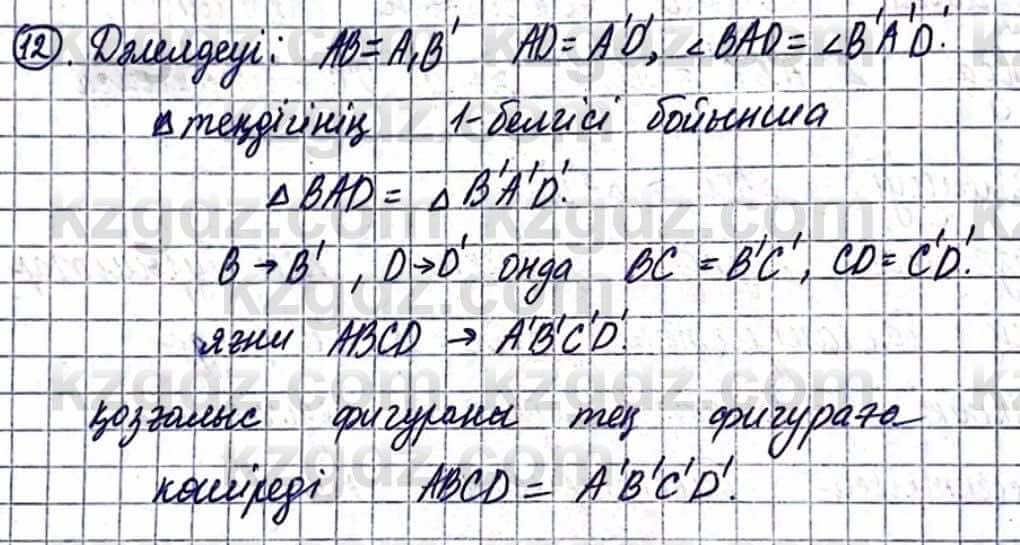 12. Дәлелдеуі: AB = A₁B' AD = A'D', ∠BAD = ∠B'A'D'.
Δ теңдігінің 1-белгісі бойынша
Δ BAD = Δ B'A'D'.
B → B', D → D' онда BC = B'C', CD = C'D'.
яғни ABCD → A'B'C'D'.
қозғалыс фигураны тең фигураға
көшіреді ABCD = A'B'C'D'.
kzgdz.com